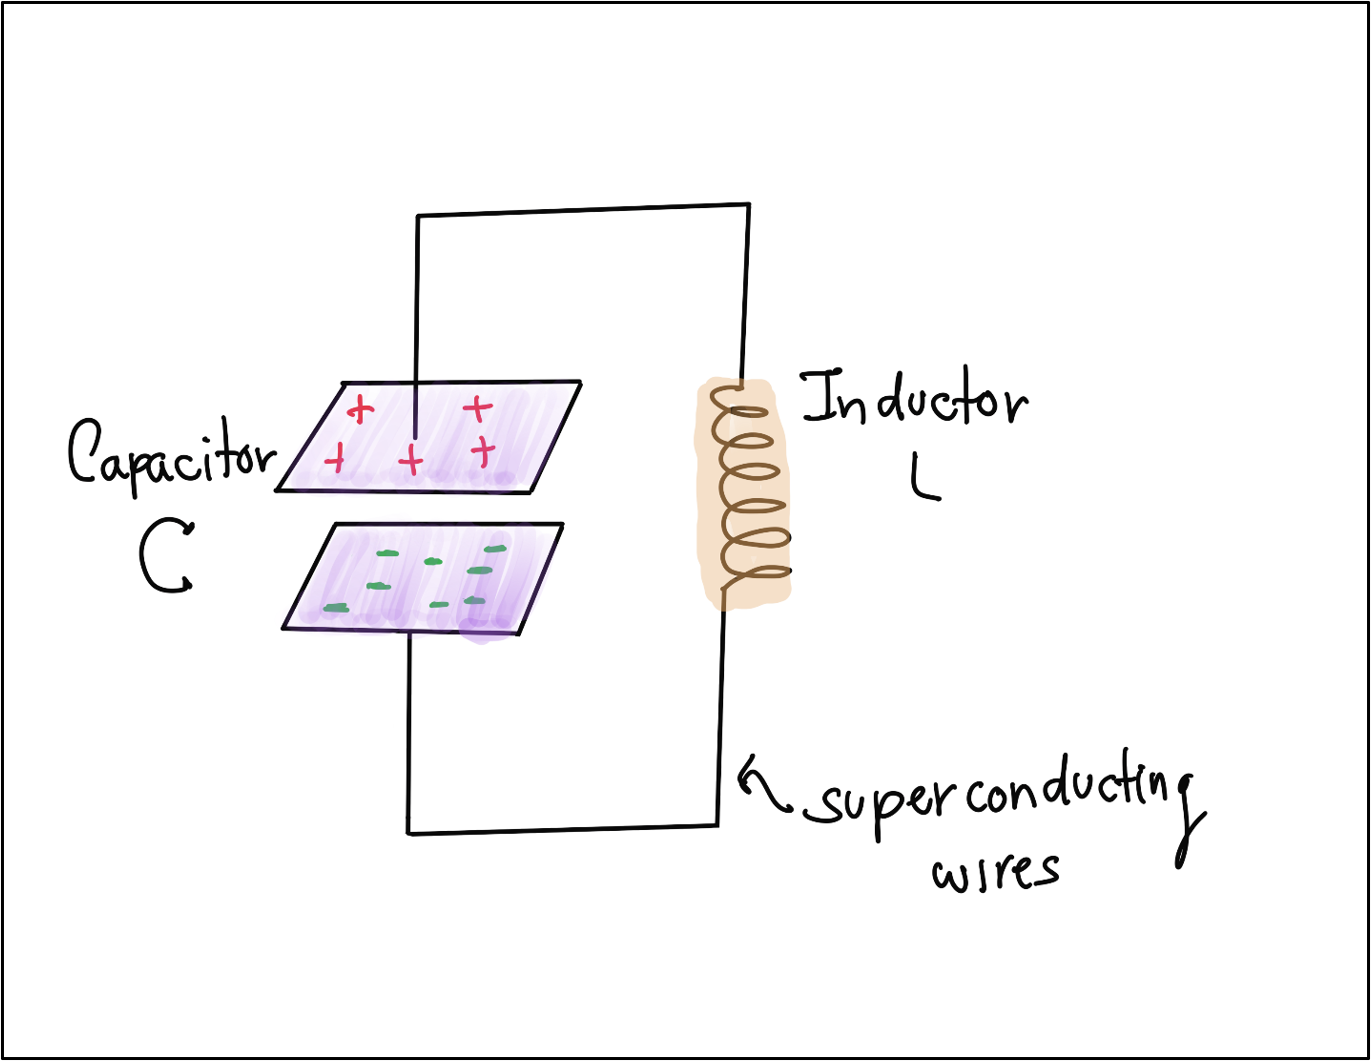 Capacitor
C
Inductor
L
superconducting
wires